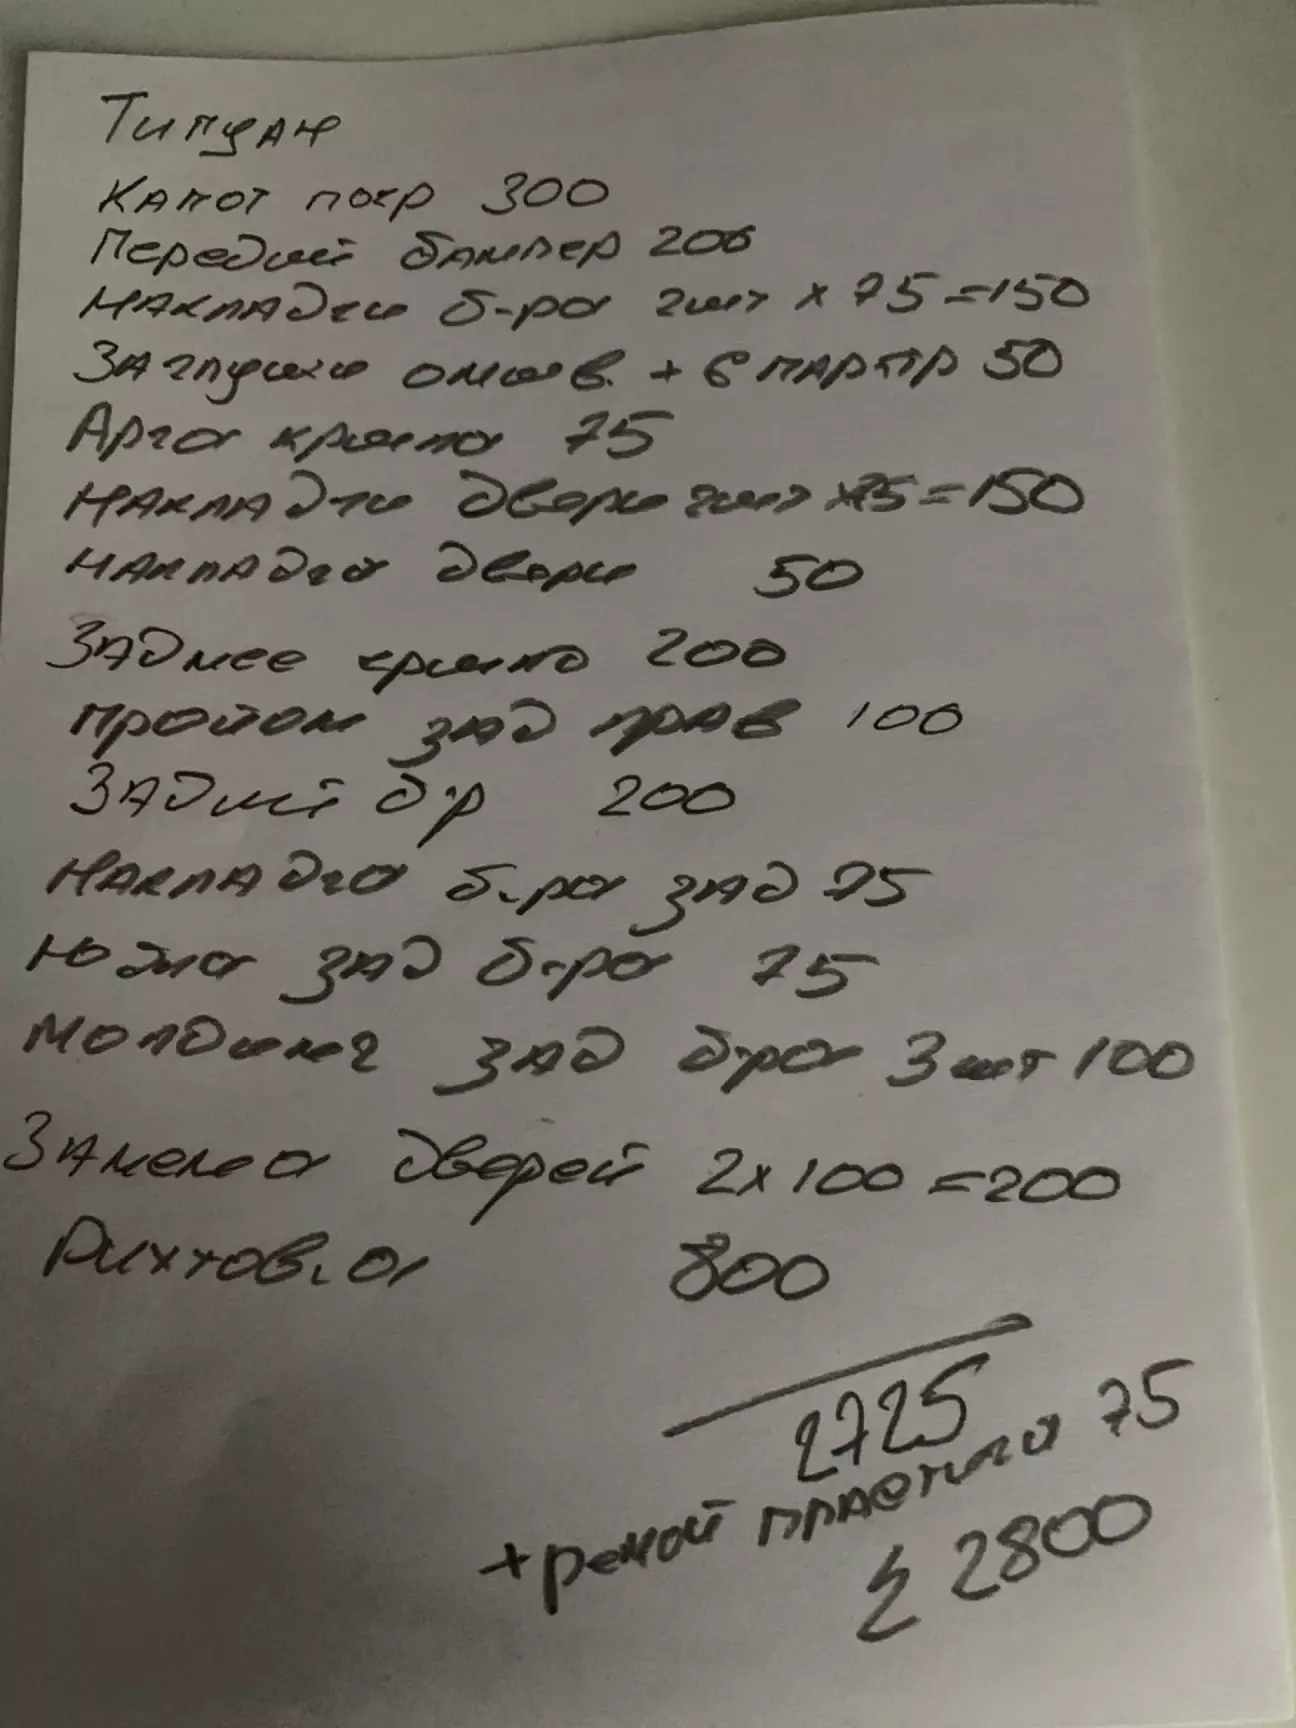 Тигуан
Капот покр 300
Передний бампер 200
Накладки б-ра 2шт x 75 =150
Заглушки омыв. + 6 парктр 50
Арка крыла 75
Накладки двери 2шт x75 =150
Накладка двери 50
Заднее крыло 200
Проём зад прав 100
Задний б-р 200
Накладка б-ра зад 75
Юбка зад б-ра 75
Молдинг зад б-ра 3 шт 100
Замена дверей 2x100 =200
Рихтов.а 800
2725
+ ремонт пластика 75
Σ 2800